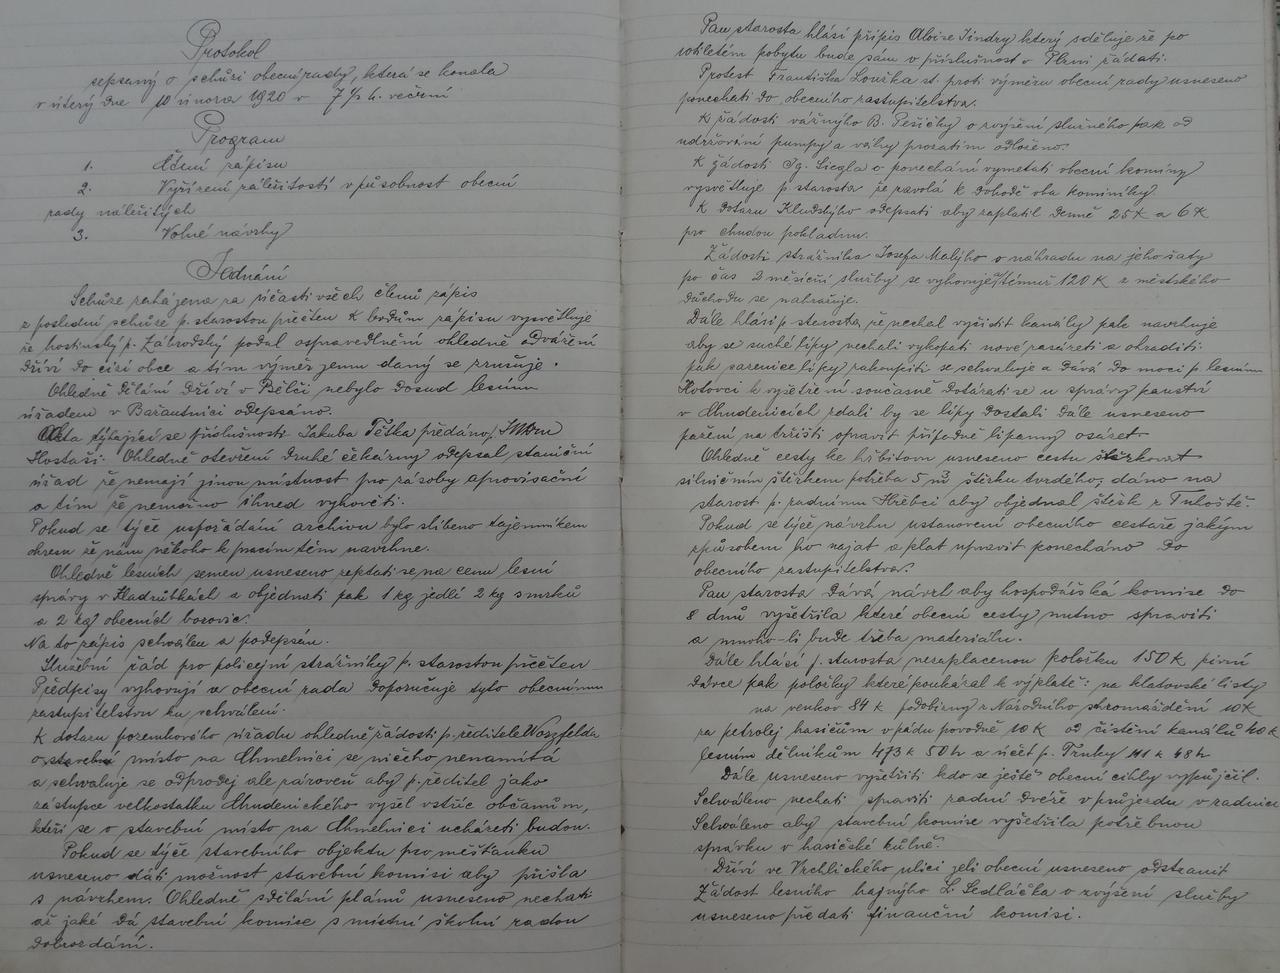 Protokol
sepsaný o schůzi obecní rady, která se konala
v úterý dne 10 února 1920 v 7 1/2 h. večerní
Program
1. Čtení zápisu
2. Vyřízení záležitostí v působnost obecní
rady náležitých
3. Volné návrhy
Jednání
Schůze zahájena za účasti všech členů zápis
z poslední schůze p. starostou přečten K bodům zápisu vysvětluje
že hostinský p. Zábrodský podal ospravedlnění ohledně odvážení
dříví do cizí obce a tím výměr jemu daný se zrušuje.
Ohledně dělání dříví v Bělči nebylo dosud lesním
úřadem v Bažantnici odepsáno.
Akta týkající se příslušnosti Jakuba Teška předáno
Hostaši. Ohledně otevření druhé čekárny odepsal staniční
úřad že nemají jinou místnost pro zásoby aprovisační
a tím že nemožno ihned vyhověti.
Pokud se týče uspořádání archivu bylo slíbeno tajemníkem
okresu že nám někoho k pracím těm navrhne.
Ohledně lesních semen usneseno zeptati se na cenu lesní
správy v a objednati pak 1 kg jedlí 2 kg smrků
a 2 kg obecních borovic.
Na to zápis schválen a podepsán.
Služební řád pro policejní strážníky p. starostou přečten
Předpisy vyhovují a obecní rada doporučuje tyto obecnímu
zastupitelstvu ku schválení.
K dotazu pozemkového úřadu ohledně žádosti p. ředitele Woszfelda
o stavební místo na Chmelnici se ničeho nenamítá
a schvaluje se odprodej ale zároveň aby p. ředitel jako
zástupce velkostatku Chudenického vyšel vstříc občanům,
kteří se o stavební místo na Chmelnici ucházeti budou.
Pokud se týče stavebního objektu pro měšťanku
usneseno dáti možnost stavební komisi aby přišla
s návrhem. Ohledně sdělání plánů usneseno nechati
až jaké dá stavební komise s místní školní radou
dobrozdání.
Pan starosta hlásí přípis Aloise Jindry který sděluje že po
10tiletém pobytu bude sám v příslušnost v Plzni žádati.
Protest Františka Louška st. proti výměru obecní rady usneseno
ponechati do obecního zastupitelstva.
K žádosti vážnýho B. Pešičky o zvýšení služného pak od
udržování pumpy a váhy prozatím odloženo.
K žádosti Ig. Siegla o ponechání vymetati obecní komíny
vysvětluje p. starosta že zavolá k dohodě oba kominíky
K dotazu Kludskýho odepsati aby zaplatil denně 25 K a 6 K
pro chudou pokladnu.
Žádosti strážníka Josefa Malýho o náhradu na jeho šaty
po čas 2 měsíční služby se vyhovuje a témuž 120 K z městského
důchodu se nahražuje.
Dále hlásí p. starosta, že nechal vyčídit kanály pak navrhuje
aby se suché lípy nechali vykopati nové zasázeti a ohraditi
pak sazenice lípy zakoupiti se schvaluje a dává do moci p. lesním
Kotovci k vyšetření současně dotázati se u správy panství
v Chudenicích zdali by se lípy dostali dále usneseno
pažení na tržišti opravit případně lípamy osázet
Ohledně cesty ke hřbitovu usneseno cestu štěrkovat
silničním štěrkem potřeba 5 m3 štěrku tvrdého, dáno na
starost p. radnímu Hřebci aby objednal štěrk z Tuhoště.
Pokud se týče návrhu ustanovení obecního cestaře jakým
způsobem ho najat a plat upravit ponecháno do
obecního zastupitelstva.
Pan starosta dává návrh aby hospodářská komise do
8 dnů vyšetřila které obecní cesty nutno spraviti
a mnoho-li bude třeba materiálu.
Dále hlásí p. starosta nezaplacenou položku 150 K pivní
dávce pak položky které poukázal k výplatě: na klatovské listy
na venkov 84 K podobizny z Národního shromáždění 10 K
za petrolej hasičům v pádu povodně 10 K od čistění kanálů 40 K
lesním dělníkům 473 K 50 h a účet p. Trnky 41 K 48 h
Dále usneseno vyšetřiti kdo se ještě obecní cihly vypůjčil.
Schváleno nechati spraviti zadní dvéře v průjezdu v radnici
Schváleno aby stavební komise vyšetřila potřebnou
správku v hasičské kůlně.
Dříví ve Vrchlického ulici jeli obecní usneseno odstranit
Žádost lesního hajnýho L. Sedláčka o zvýšení služby
usneseno předati finanční komisi.